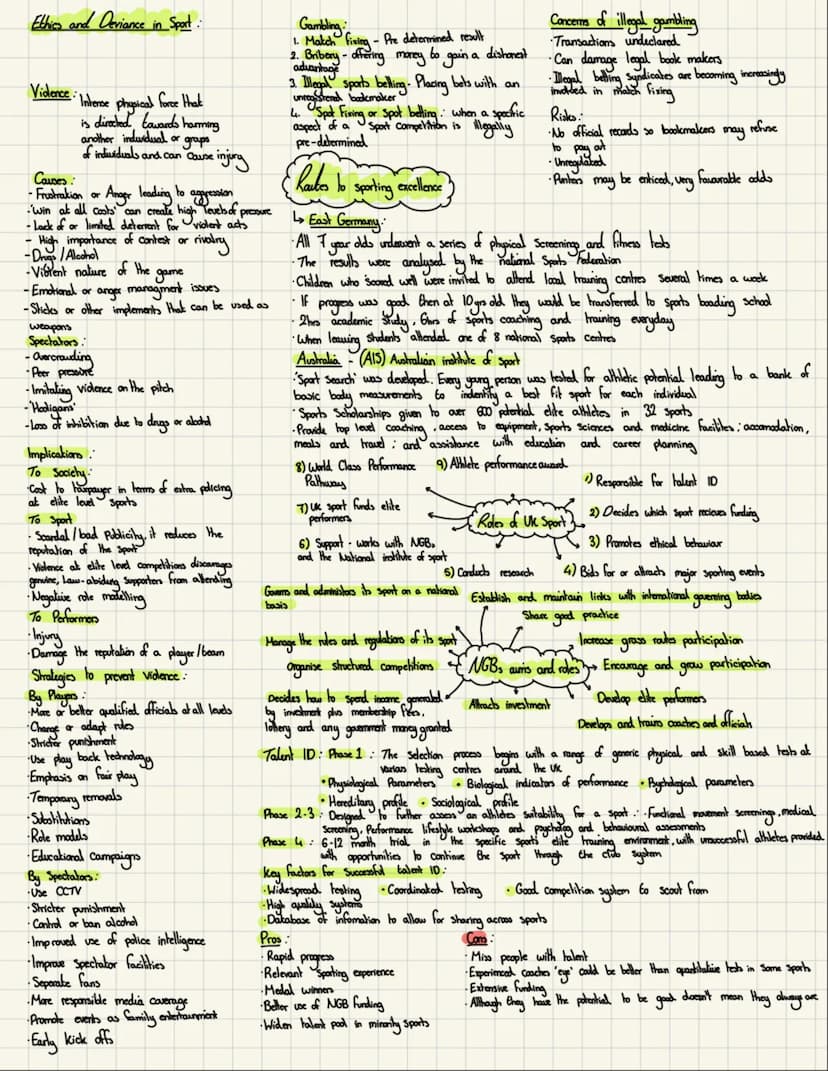 Ethics and Deviance in Sport:
Violence: Intense physical force that
is directed towards harming
another individual or groups
of individuals and can cause injury
Causes:
- Frustration or Anger leading to aggression
- 'Win at all costs' can create high levels of pressure
- Lack of or limited deterrent for violent acts
- High importance of contest or rivalry
- Drugs / Alcohol
- Violent nature of the game
- Emotional or anger managment issues
- Sticks or other implements that can be used as
weapons
Spectators:
- Overcrowding
- Peer pressure
- Imitating violence on the pitch
- 'Hooligans'
- Loss of inhibition due to drugs or alcohol
Implications:
To Society:
· Cost to taxpayer in terms of extra policing
at elite level sports
To Sport
· Scandal / bad publicity, it reduces the
reputation of the sport
· Violence at elite level competitions discourages
genuine, Law-abiding supporters from attending
· Negative role modelling
To Performers
· Injury
· Damage the reputation of a player/team
Strategies to prevent Violence:
By Players:
· More or better qualified officials at all levels
· Change or adapt rules
· Stricter punishment
· Use play back technology
· Emphasis on fair play
· Temporary removals
· Substitutions
· Role models
· Educational campaigns
By Spectators:
· Use CCTV
· Stricter punishment
· Control or ban alcohol
· Improved use of police intelligence
· Improve Spectator facilities
· Separate fans
· More responsible media coverage
· Promote events as family entertainment
· Early kick offs
Gambling:
1. Match fixing - Pre determined result
2. Bribery - offering money to gain a dishonest
advantage
3. Illegal sports betting - Placing bets with an
unregistered bookmaker
4. Spot Fixing or Spot betting: when a specific
aspect of a sport competition is illegally
pre-determined
Concerns of illegal gambling
· Transactions undeclared
· Can damage legal book makers
· Illegal betting syndicates are becoming increasingly
involved in match fixing
Risks:
· No official records so bookmakers may refuse
to pay out
· Unregulated
· Punters may be enticed, very favourable odds
Routes to sporting excellence
↳ East Germany:
· All 7 year olds underwent a series of physical Screenings and fitness tests
· The results were analysed by the national Sports Federation
· Children who scored well were invited to attend local training centres several times a week
· If progress was good then at 10 yrs old they would be transferred to sports boading school
· 2hrs academic study, 6hrs of sports coaching and training everyday
· When leaving students attended one of 8 national sports centres
Australia - (AIS) Australian institute of sport
· 'Sport Search' was developed. Every young person was tested for athletic potential leading to a bank of
basic body measurements to indentify a best fit sport for each individual
· Sports Scholarships given to over 600 potential elite athletes in 32 sports
· Provide top level coaching, access to equipment, Sports Sciences and medicine facilties; accomodation,
meals and travel; and assistance with education and career planning
Roles of UK Sport
1) Responsible for talent ID
2) Decides which sport recieves funding
3) Promotes ethical behaviour
4) Bids for or attracts major sporting events
5) Conducts research
6) Support - works with NGBs
and the National institute of sport
7) UK sport funds elite
performers
8) World Class Performance
Pathway
9) Athlete performance award
NGBs aims and roles
Governs and administers its sport on a national
basis
Establish and maintain links with international governing bodies
Share good practice
Manage the rules and regulations of its sport
Increase grass routes participation
Organise structured competitions
Encourage and grow participation
Decides how to spend income generated
by investment plus membership fees,
lottery and any government money granted
Attracts investment
Develop elite performers
Develops and trains coaches and officials
Talent ID: Phase 1: The selection process begins with a range of generic physical and skill based tests at
various testing centres around the UK
· Physiological Parameters · Biological indicators of performance · Psychological parameters
· Hereditary profile · Sociological profile
Phase 2-3: Designed to further assess an athletes suitability for a sport: · Functional movement screenings, medical
Screening, Performance lifestyle workshops and psychology and behavioural assessments
Phase 4: 6-12 month trial in the specific sports elite training environment, with unsuccessful athletes provided
with opportunities to continue the sport through the club system
Key factors for successful talent ID:
· Widespread testing · Coordinated testing · Good competition system to scout from
· High quality systems
· Database of infomation to allow for sharing across sports
Pros:
· Rapid progress
· Relevant sporting experience
· Medal winners
· Better use of NGB funding
· Widen talent pool in minority sports
Cons:
· Miss people with talent
· Experienced coaches 'eye' could be better than quantitative tests in some sports
· Extensive funding
· Although they have the potential to be good doesn't mean they always are